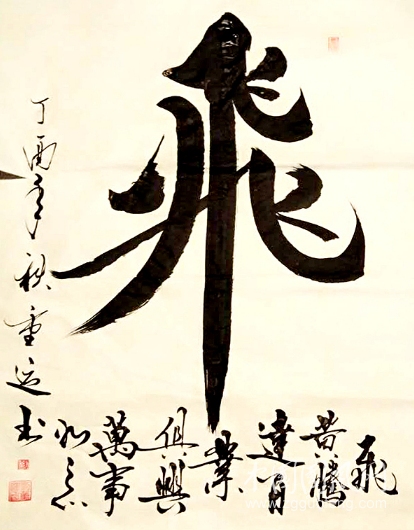 飛
飛
黄騰
達百
業
俱興
萬事
如意
丁酉年秋重运书